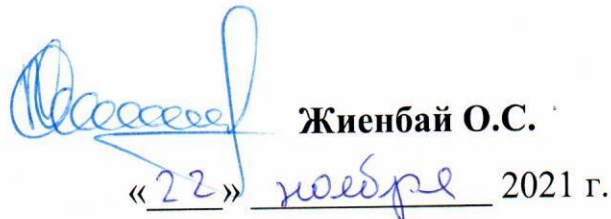 Жиенбай О.С.
«22» ноября 2021 г.